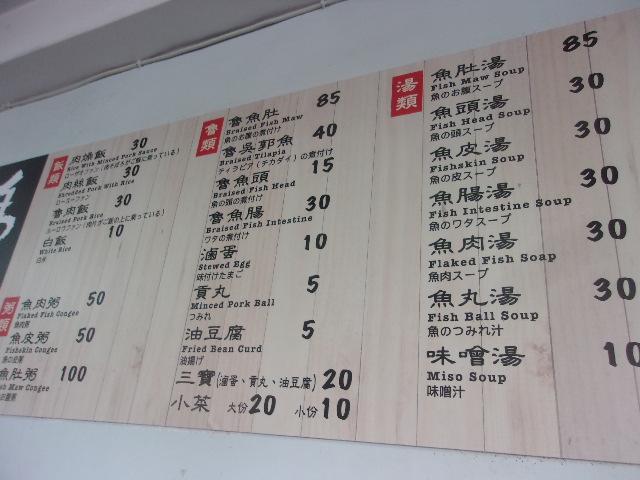 飯類
肉燥飯 30
Rice With Minced Pork Sauce
肉絲飯 30
Shredded Pork With Rice
魯肉飯 30
Braised Pork Rice
白飯 10
White Rice
白丼
粥類
魚肉粥 50
Flaked Fish Congee
魚肉粥
魚皮粥 50
Fishskin Congee
魚の皮粥
魚肚粥 100
Maw Congee
魯類
魯魚肚 85
Braised Fish Maw
魚のお腹の煮付け
魯吳郭魚 40
Braised Tilapia
ティラピア(チカダイ)の煮付け
魯魚頭 15
Braised Fish Head
魚の頭の煮付け
魯魚腸 30
Braised Fish Intestine
ワタの煮付け
滷蛋 10
Stewed Egg
味付けたまご
貢丸 5
Minced Pork Ball
つみれ
油豆腐 5
Fried Bean Curd
油揚げ
三寶(滷蛋、貢丸、油豆腐) 20
小菜 大份 20 小份 10
湯類
魚肚湯 85
Fish Maw Soup
魚のお腹スープ
魚頭湯 30
Fish Head Soup
魚の頭スープ
魚皮湯 30
Fishskin Soup
魚の皮スープ
魚腸湯 30
Fish Intestine Soup
魚のワタスープ
魚肉湯 30
Flaked Fish Soap
魚肉スープ
魚丸湯 30
Fish Ball Soup
魚のつみれ汁
味噌湯 10
Miso Soup
味噌汁